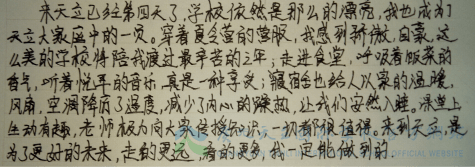 来天立已经第四天了,学校依然是那么的漂亮,我也成为
天立大家庭中的一员。穿着食堂的堂服,我感到骄傲,自豪,这
么美的学校将陪我渡过最辛苦的三年;走进食堂,呼吸着饭菜的
香气,听着悦耳的音乐,真是一种享受;寝室也给人以家的温暖,
风扇,空调降质了温度,减少了内心的躁热,让我们安然入睡。课堂上
生动有趣,老师极力向大家传授知识,一切都很值得。来到天立是
为了更好的未来,走的更远,看的更多,我一定能做到的